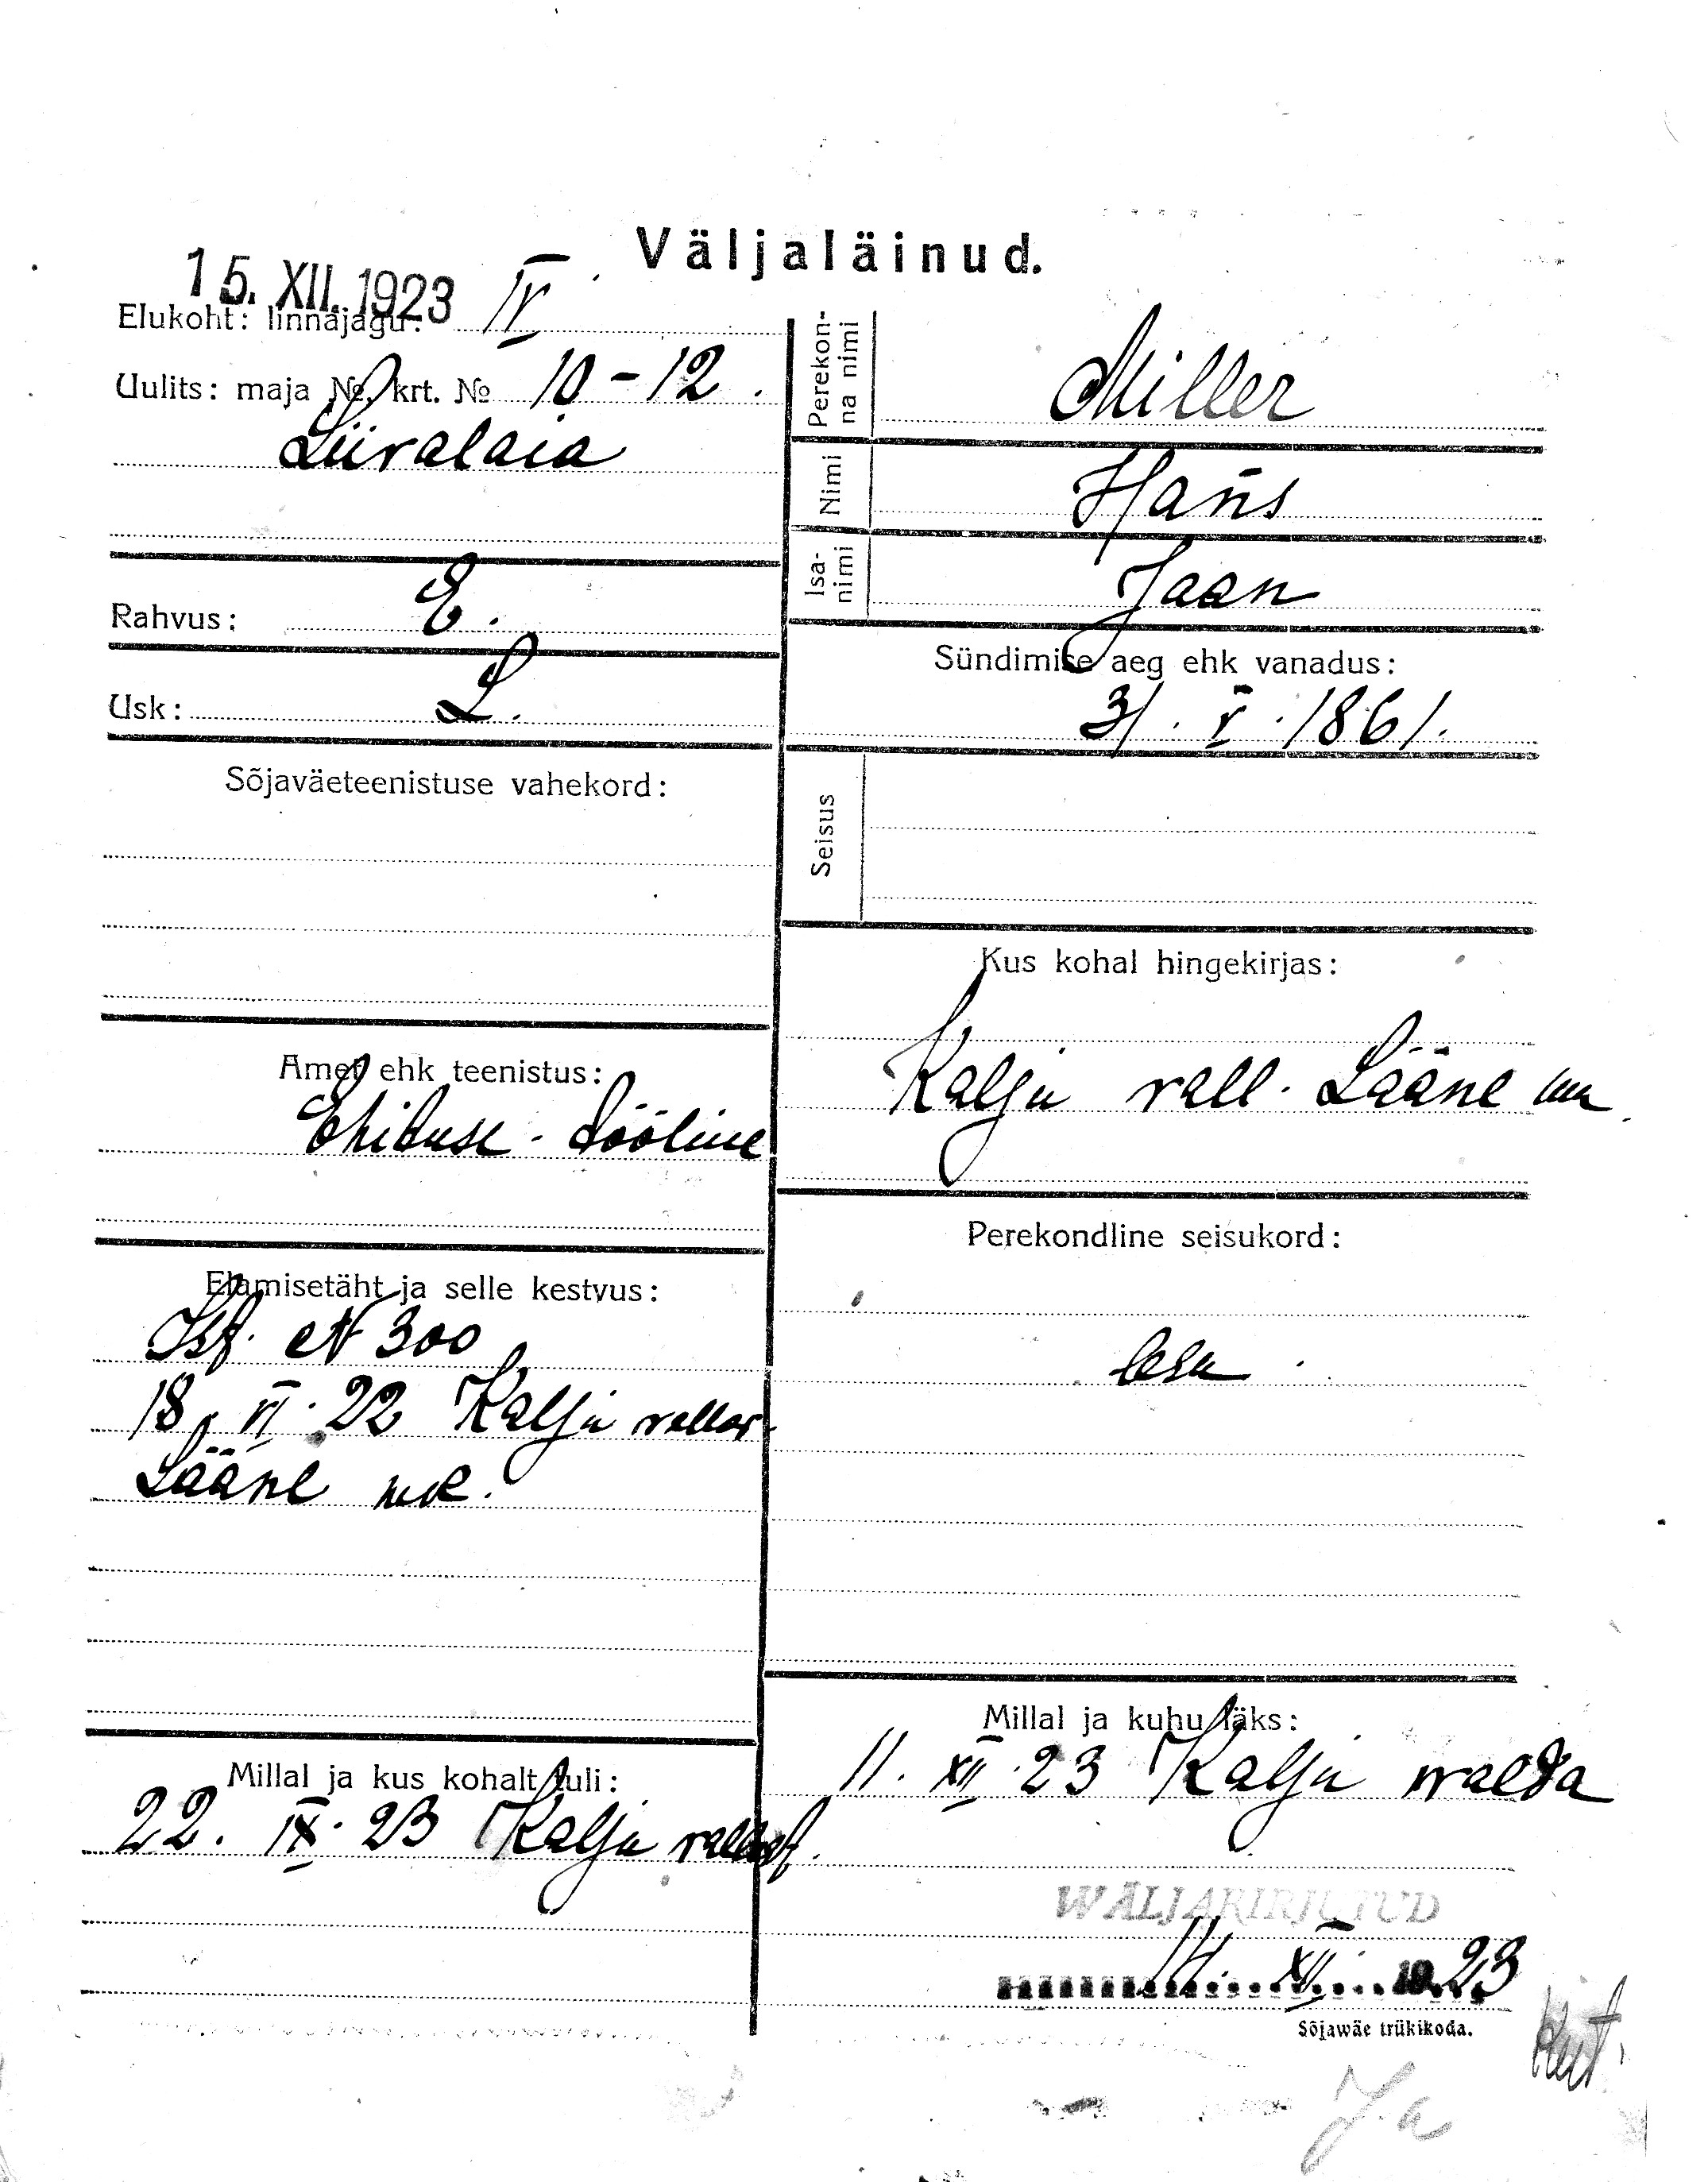 Väljaläinud.
15. XII. 1923
Elukoht: linnajagu: IV
Uulits: maja №, krt. № 10-12.
Liivalaia
Rahvus: E.
Usk: L.
Sõjaväeteenistuse vahekord:
Amet ehk teenistus:
Ehituse-tööline
Elamisetäht ja selle kestvus:
Ist. N 300
18. VI. 22 Kalju vallav.
Lääne mk.
Millal ja kus kohalt tuli:
22. IX. 23 Kalju vallast.
Perekonna nimi
Miller
Nimi
Hans
Isanimi
Jaan
Sündimise aeg ehk vanadus:
31. V. 1861.
Seisus
Kus kohal hingekirjas:
Kalju vall. Lääne mk
Perekondline seisukord:
lesk
Millal ja kuhu läks:
11. XII. 23 Kalju walda
WÄLJAKIRJUTUD
14. XII. 1923
Sõjawäe trükikoda.